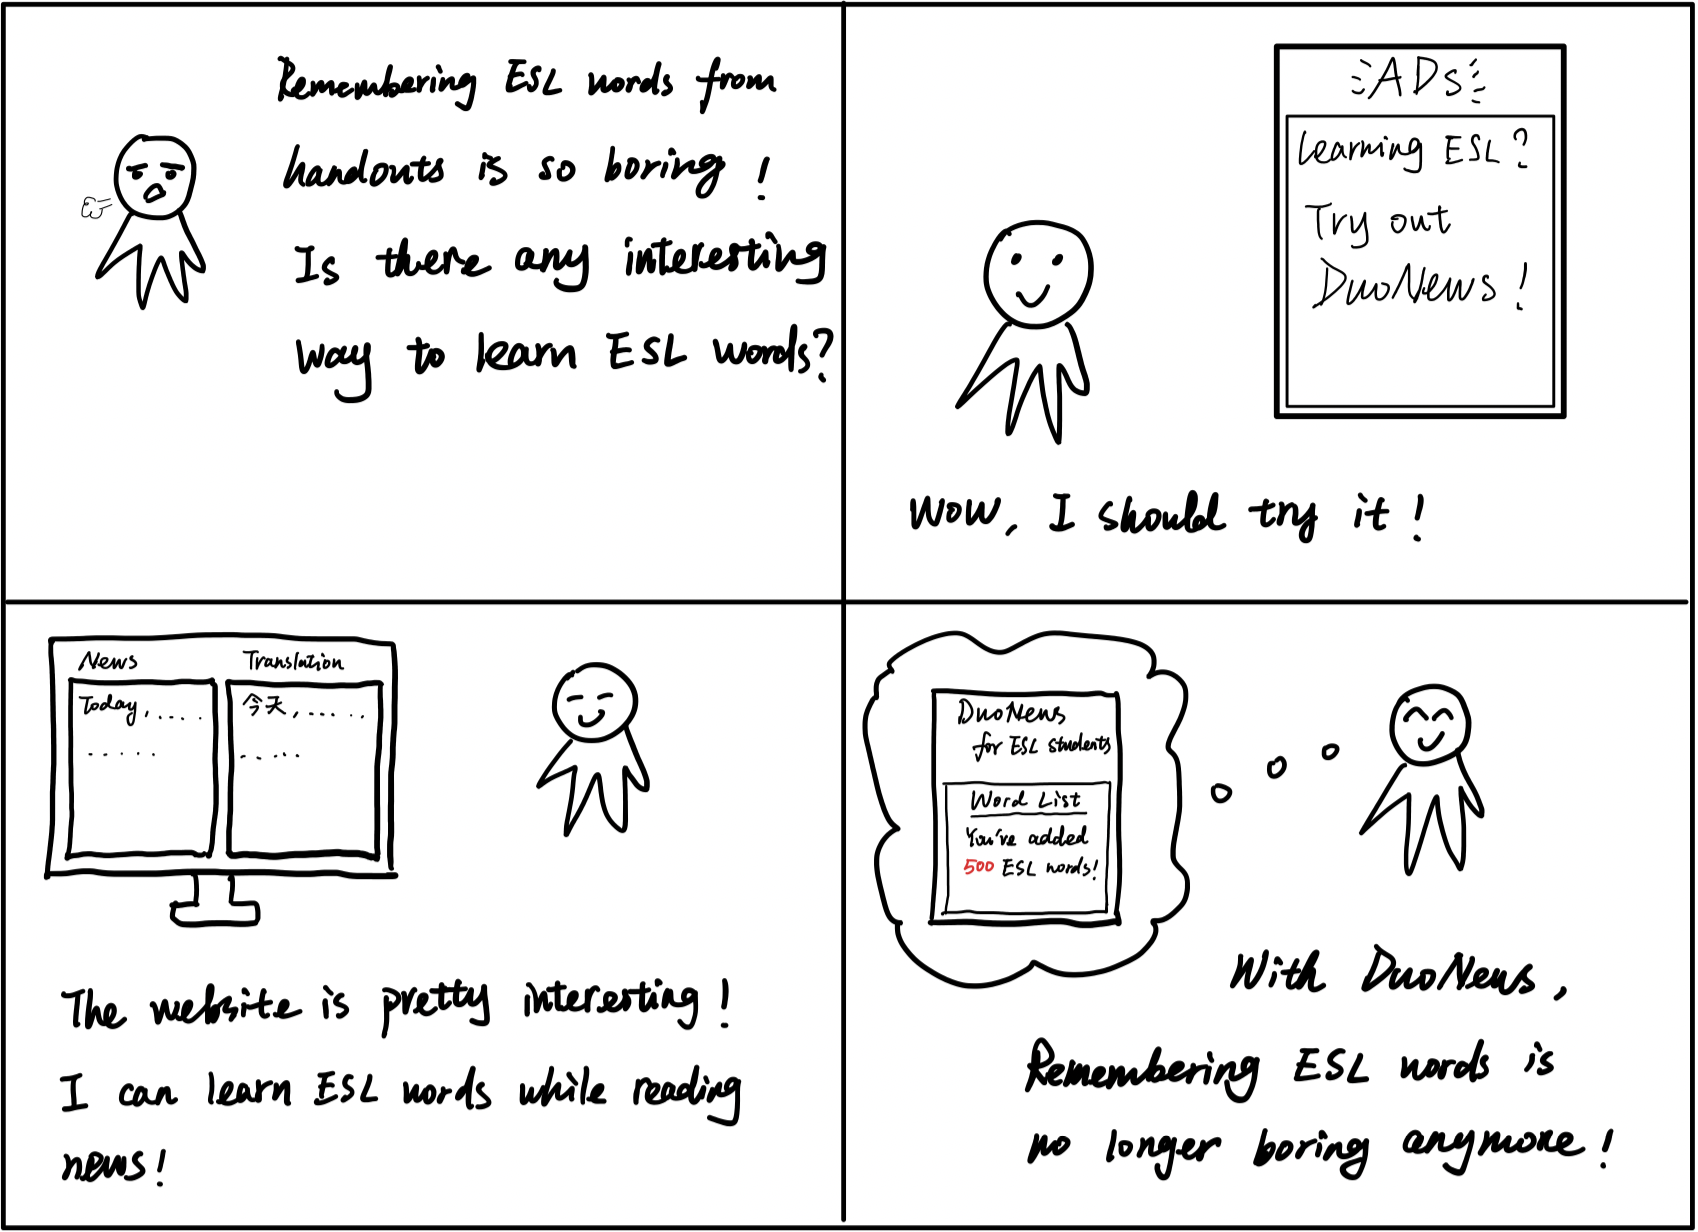 Remembering ESL words from
handouts is so boring!
Is there any interesting
way to learn ESL words?
ADs
Learning ESL?
Try out
DuoNews!
Wow, I should try it!
News
Translation
Today, .....
.....
今天, ......
.....
The website is pretty interesting!
I can learn ESL words while reading
news!
DuoNews
for ESL students
Word List
You've added
500 ESL words!
With DuoNews,
Remembering ESL words is
no longer boring anymore!